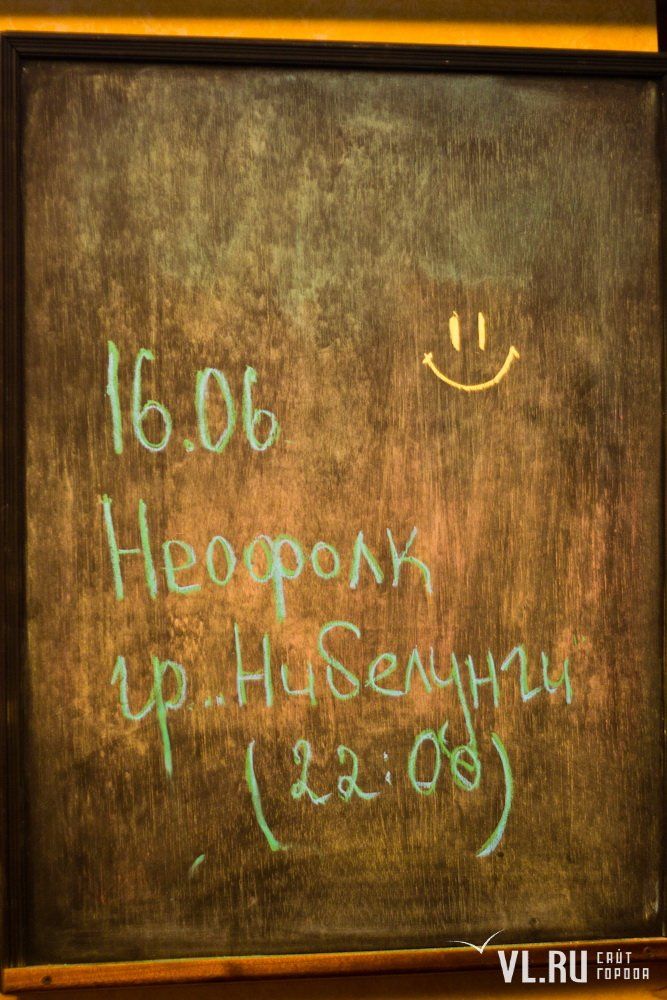 16.06
Неофолк
гр. „Нибелунги"
(22:00)
VL.RU САЙТ
ГОРОДА